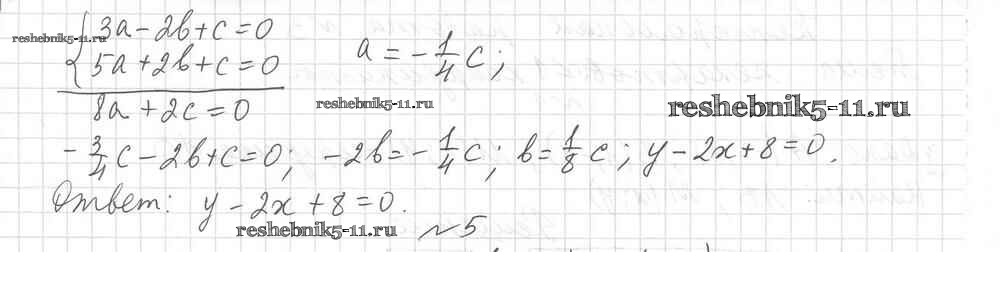 { 3a - 2b + c = 0
reshebnik5-11.ru
5a + 2b + c = 0 a = -1/4 c;
8a + 2c = 0 reshebnik5-11.ru reshebnik5-11.ru
-3/4 c - 2b + c = 0; -2b = -1/4 c; b = 1/8 c; y - 2x + 8 = 0.
Ответ: y - 2x + 8 = 0.
reshebnik5-11.ru №5